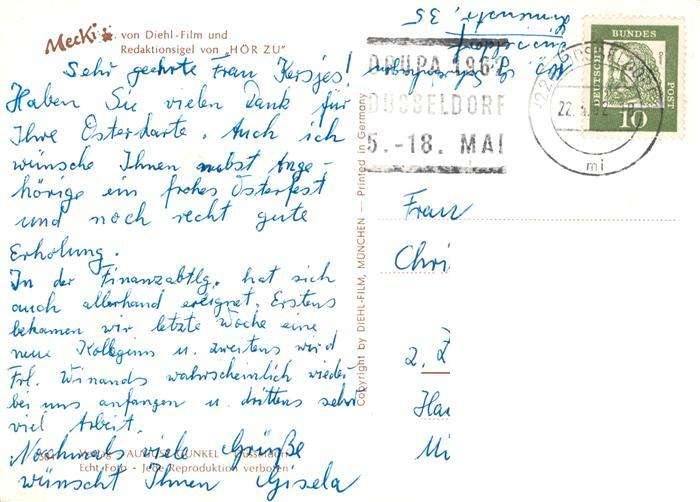 Mecki . von Diehl-Film und
Redaktionsigel von "HÖR ZU"
Sehr geehrte Frau Kersjes!
Haben Sie vielen Dank für
Ihre Osterkarte. Auch ich
wünsche Ihnen nebst Ange-
hörige ein frohes Osterfest
und noch recht gute
Erholung.
In der Finanzabtlg. hat sich
auch allerhand ereignet. Erstens
bekamen wir letzte Woche eine
neue Kollegin u. zweitens wird
Frl. Winands wahrscheinlich wieder
bei uns anfangen u. drittens sehr
viel Arbeit.
Nochmals viele Grüße
wünscht Ihnen Gisela
Echt Foto - Jede Reproduktion verboten
Copyright by DIEHL-FILM, MÜNCHEN — Printed in Germany
35
DRUPA 1962
DÜSSELDORF
5.-18. MAI
22.
mi
DEUTSCHE BUNDESPOST
10
Frau
Chri
2.
Hau
Mi